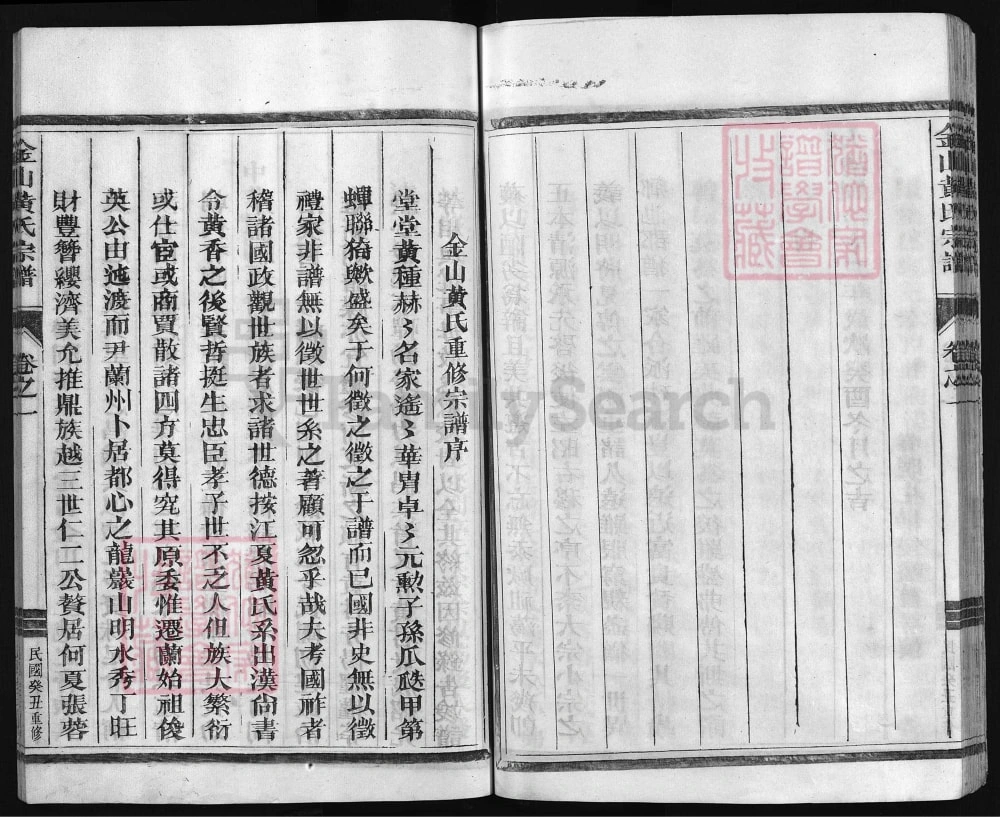 金山黃氏宗譜
卷之一
金山黃氏重修宗譜序
堂堂黃種赫〻名家遙〻華冑卓〻元勳子孫瓜瓞甲第
蟬聯猗歟盛矣于何徵之徵之于譜而已國非史無以徵
禮家非譜無以徵世世系之著顧可忽乎哉夫考國祚者
稽諸國政觀世族者求諸世德按江夏黃氏系出漢尙書
令黃香之後賢哲挺生忠臣孝子世不乏人但族大繁衍
或仕宦或商賈散諸四方莫得究其原委惟遷蘭始祖俊
英公由迤渡而尹蘭州卜居都心之龍巖山明水秀丁旺
財豐簪纓濟美允推鼎族越三世仁二公贅居何夏張蓉
金山黃氏宗譜
卷之一
民國癸丑重修
FamilySearch